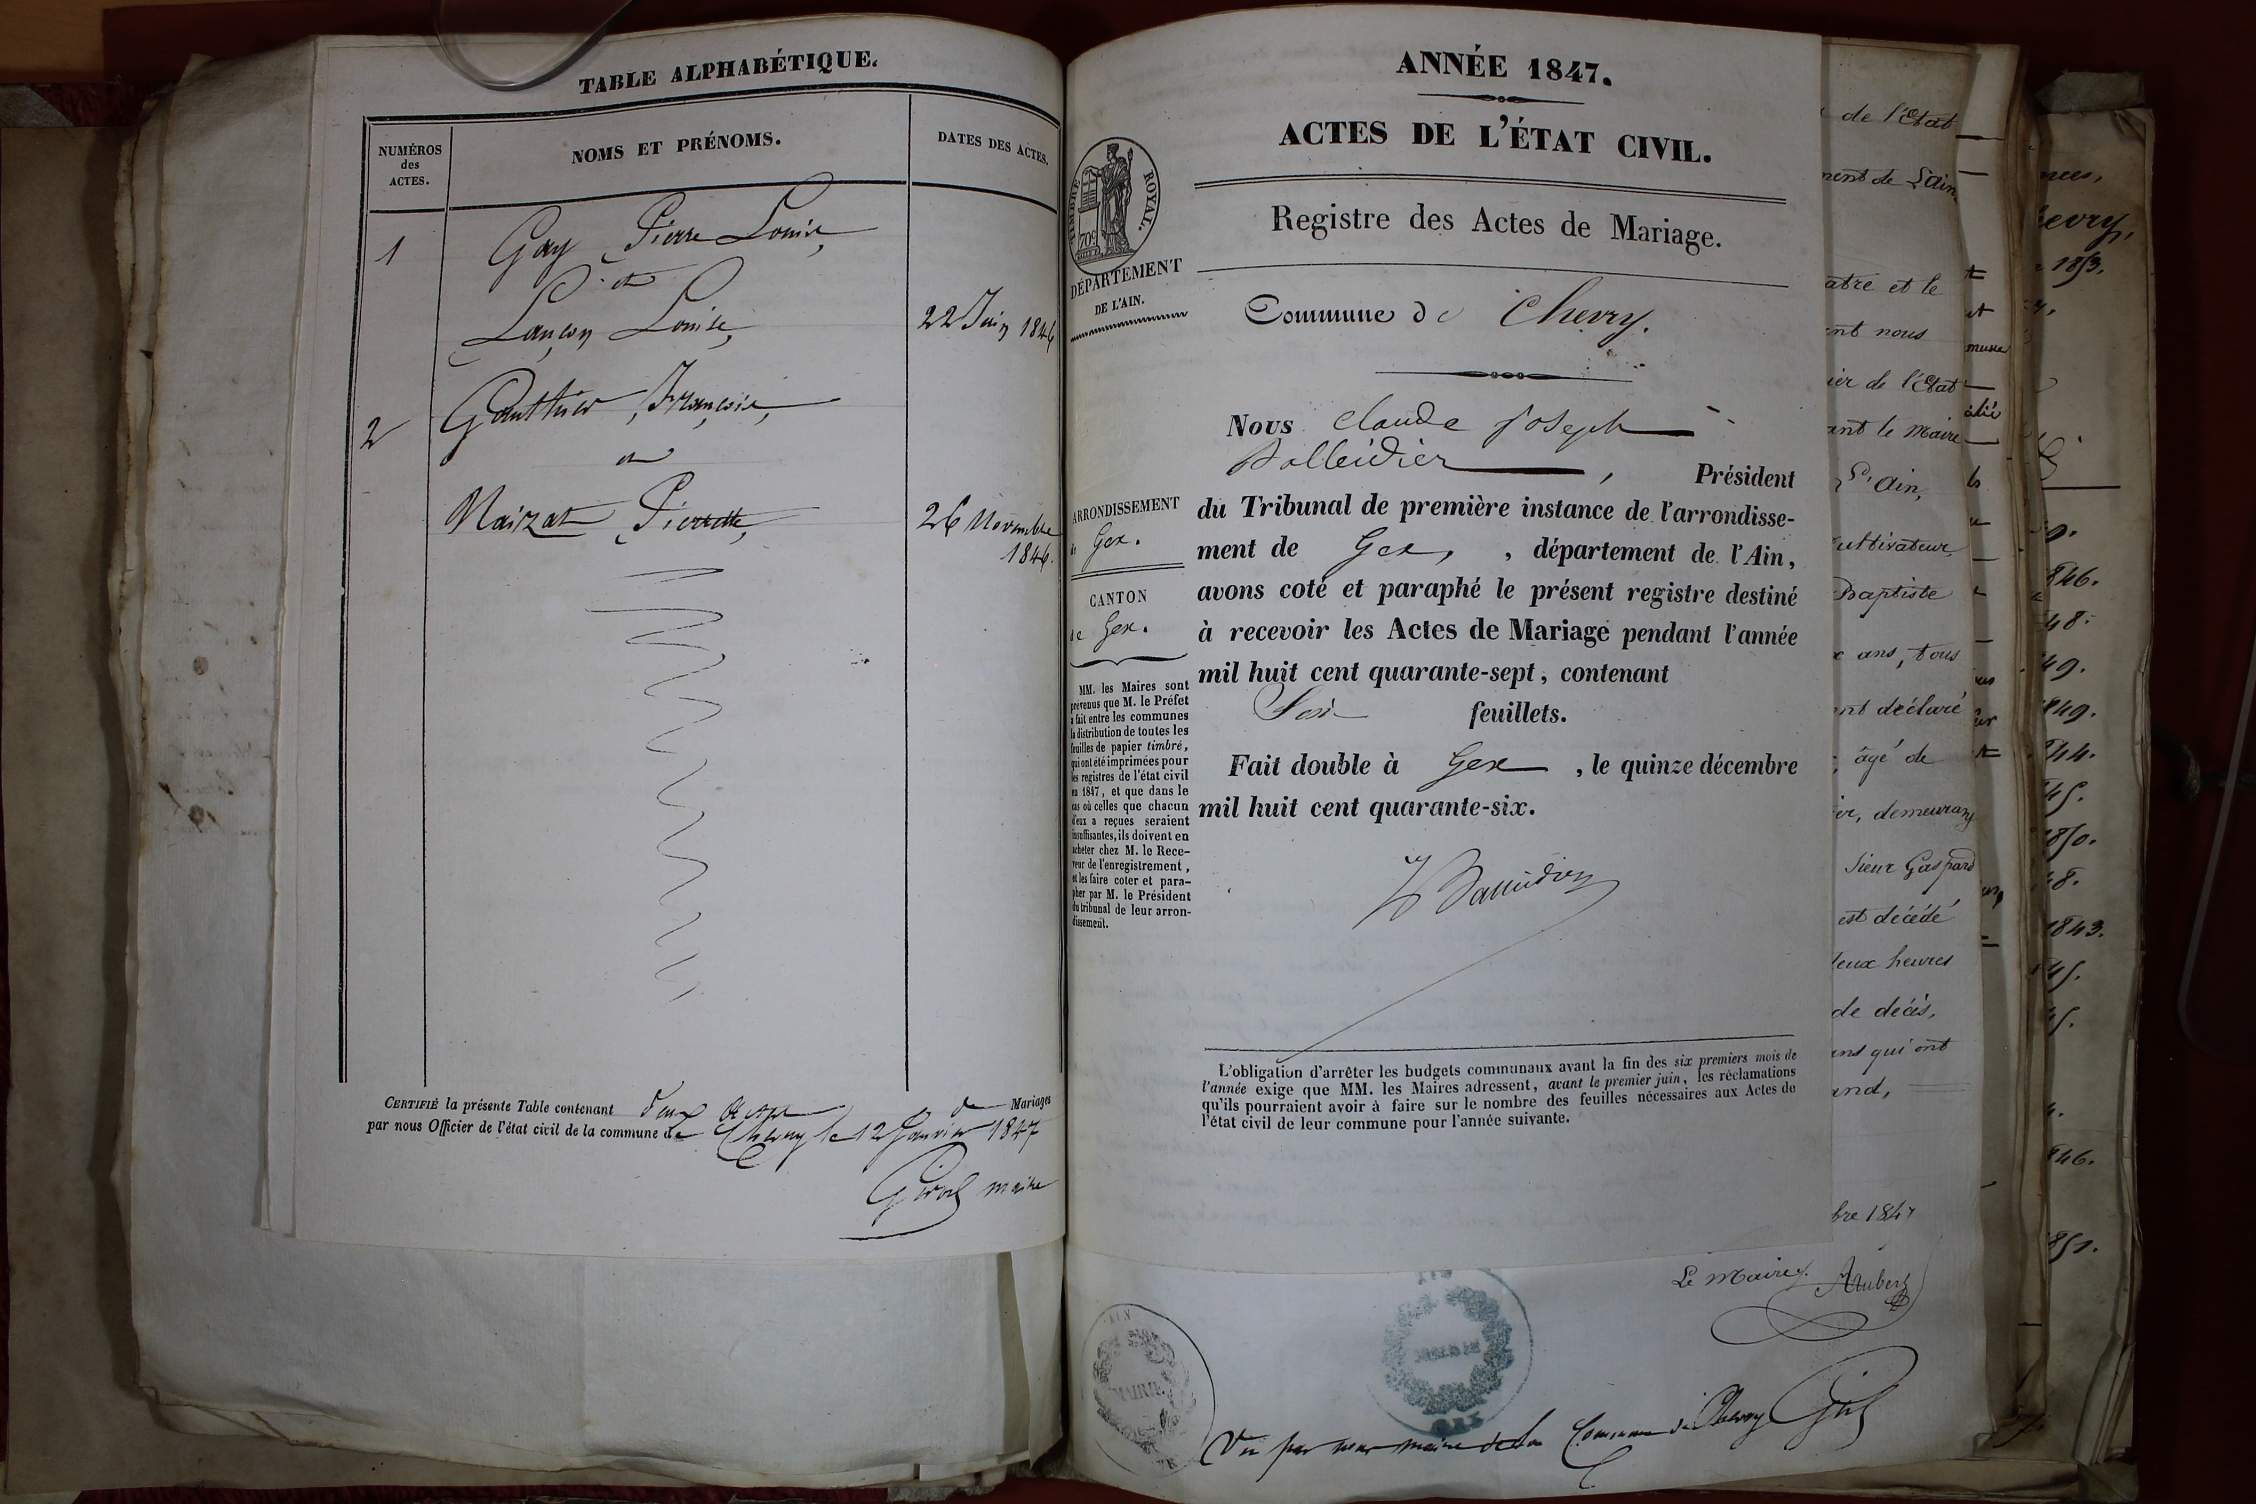 TABLE ALPHABÉTIQUE.
NUMÉROS
des
ACTES.
NOMS ET PRÉNOMS.
DATES DES ACTES.
1
Gay Pierre Louis,
et
Lançon Louise,
22 Juin 1846
2
Gauthier, François,
et
Maizat Pierrette,
26 Novembre
1846.
CERTIFIÉ la présente Table contenant deux Actes de Mariages
par nous Officier de l'état civil de la commune de Chevry le 12 Janvier 1847
Girod maire
ANNÉE 1847.
ACTES DE L'ÉTAT CIVIL.
Registre des Actes de Mariage.
TIMBRE ROYAL.
70c
DÉPARTEMENT
DE L'AIN.
Commune de Chevry.
Nous Claude Joseph
Balleidier, Président
du Tribunal de première instance de l'arrondisse-
ment de Gex, , département de l'Ain,
avons coté et paraphé le présent registre destiné
à recevoir les Actes de Mariage pendant l'année
mil huit cent quarante-sept, contenant
feuillets.
Fait double à Gex, le quinze décembre
mil huit cent quarante-six.
ARRONDISSEMENT
de Gex.
CANTON
de Gex.
MM. les Maires sont
prévenus que M. le Préfet
a fait entre les communes
la distribution de toutes les
feuilles de papier timbré,
qui ont été imprimées pour
les registres de l'état civil
en 1847, et que dans le
cas où celles que chacun
d'eux a reçues seraient
insuffisantes, ils doivent en
acheter chez M. le Rece-
veur de l'enregistrement,
et les faire coter et para-
pher par M. le Président
du tribunal de leur arron-
dissement.
L'obligation d'arrêter les budgets communaux avant la fin des six premiers mois de
l'année exige que MM. les Maires adressent, avant le premier juin, les réclamations
qu'ils pourraient avoir à faire sur le nombre des feuilles nécessaires aux Actes de
l'état civil de leur commune pour l'année suivante.
de l'Etat
ment de l'Ain
atre et le
ent nous
ier de l'Etat
ant le Maire
Ain,
cultivateur
Baptiste
ans, tous
ont déclaré
, âgé de
er, demeurant
Sieur Gaspard
est décédé
deux heures
de décès,
ans qui ont
and,
bre 1847
Le Maire, Aubert
MAIRIE
Vu par nous maire de la Commune de Chevry Girod